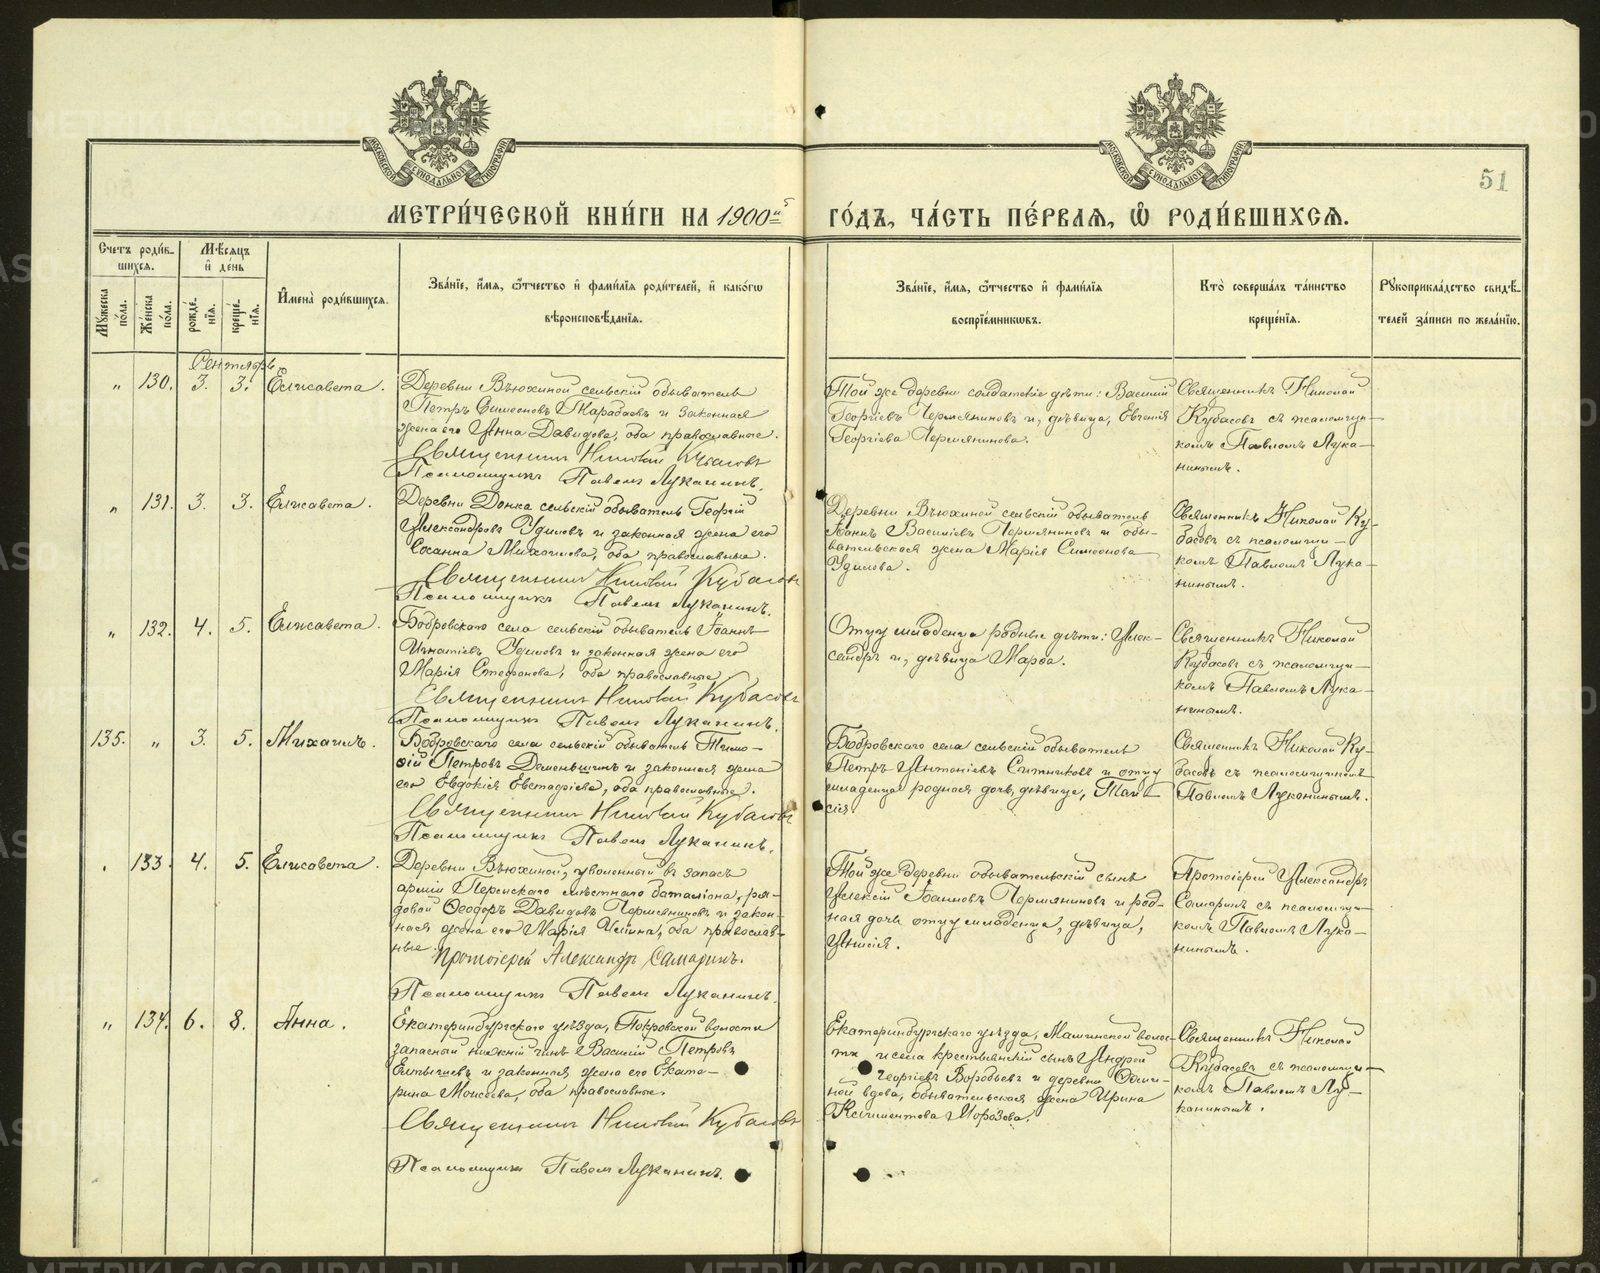 МОСКОВСКОЙ СѴНОДАЛЬНОЙ ТИПОГРАФІИ
МОСКОВСКОЙ СѴНОДАЛЬНОЙ ТИПОГРАФІИ
51
МЕТРИ́ЧЕСКОЙ КНИ́ГИ НА 1900й ГО́ДЪ, ЧА́СТЬ ПЕ́РВАЯ, Ѡ РОДИ́ВШИХСЯ.
Счетъ роди́вшихся.
Мѣсяцъ и де́нь
Мужеска по́ла.
Же́нска по́ла.
рожде́нїя.
креще́нїя.
Имена̀ роди́вшихся.
Зва́нїе, и́мя, ѻ҆́тчество и фами́лїя роди́телей, и како́гѡ
вѣроисповѣ́данїя.
Зва́нїе, и́мя, ѻ҆́тчество и фами́лїя
воспрїе́мникѡвъ.
Кто̀ соверша́лъ та́инство
креще́нїя.
Рукоприкла́дство свидѣ́-
телей за́писи по жела́нїю.
Сентябрь
„ 130. 3. 3. Елисавета.
Деревни Вьюхиной сельскій обыватель
Петръ Симеоновъ Тарабаевъ и законная
жена его Анна Давидова, оба православные.
Священникъ Николай Кубасовъ
Псаломщикъ Павелъ Луканинъ.
Той же деревни солдатскіе дѣти: Василій
Георгіевъ Пермяниновъ и, дѣвица, Евгенія
Георгіева Пермянинова.
Священникъ Николай
Кубасовъ съ псаломщи-
комъ Павломъ Лука-
нинымъ.
„ 131. 3. 3. Елисавета.
Деревни Донка сельскій обыватель Георгій
Александровъ Удиловъ и законная жена его
Сосанна Михаилова, оба православные.
Священникъ Николай Кубасовъ
Псаломщикъ Павелъ Луканинъ.
Деревни Вьюхиной сельскій обыватель
Іоаннъ Васильевъ Пермяниновъ и обы-
вательская жена Марія Симеонова
Удилова.
Священникъ Николай Ку-
басовъ съ псаломщи-
комъ Павломъ Лука-
нинымъ.
„ 132. 4. 5. Елисавета.
Бобровскаго села сельскій обыватель Іоаннъ
Игнатіевъ Удиловъ и законная жена его
Марія Стефанова, оба православные
Священникъ Николай Кубасовъ
Псаломщикъ Павелъ Луканинъ.
Отцу младенца родные дѣти: Алек-
сандръ и, дѣвица Марѳа.
Священникъ Николай
Кубасовъ съ псаломщи-
комъ Павломъ Лука-
нинымъ.
135. „ 3. 5. Михаилъ.
Бобровскаго села сельскій обыватель Тимо-
ѳій Петровъ Деменьшинъ и законная жена
его Евдокія Евстафіева, оба православные.
Священникъ Николай Кубасовъ
Псаломщикъ Павелъ Луканинъ.
Бобровскаго села сельскій обыватель
Петръ Антоніевъ Ситниковъ и отцу
младенца родная дочь, дѣвица, Таи-
сія.
Священникъ Николай Ку-
басовъ съ псаломщикомъ
Павломъ Луканинымъ.
„ 133. 4. 5. Елисавета.
Деревни Вьюхиной, уволенный въ запасъ
арміи Пермскаго мѣстнаго баталіона, ря-
довой Ѳеодоръ Давидовъ Пермяниновъ и закон-
ная жена его Марія Ильина, оба православ-
ные. Протоіерей Александръ Самаринъ.
Псаломщикъ Павелъ Луканинъ.
Той же деревни обывательскій сынъ
Алексій Іоанновъ Пермяниновъ и род-
ная дочь отцу младенца, дѣвица,
Анисія.
Протоіерей Александръ
Самаринъ съ псаломщи-
комъ Павломъ Лука-
нинымъ.
„ 134. 6. 8. Анна.
Екатеринбургскаго уѣзда, Покровской волости
запасный нижній чинъ Василій Петровъ
и законная жена его Екате-
рина Моисеева, оба православные.
Священникъ Николай Кубасовъ
Псаломщикъ Павелъ Луканинъ.
Екатеринбургскаго уѣзда, Маминской волос-
ти и села крестьянскій сынъ Андрей
Георгіевъ Воробьевъ и деревни
вдова, обывательская жена Ирина
Климентова Морозова.
Священникъ Николай
Кубасовъ съ псаломщи-
комъ Павломъ Лу-
канинымъ.